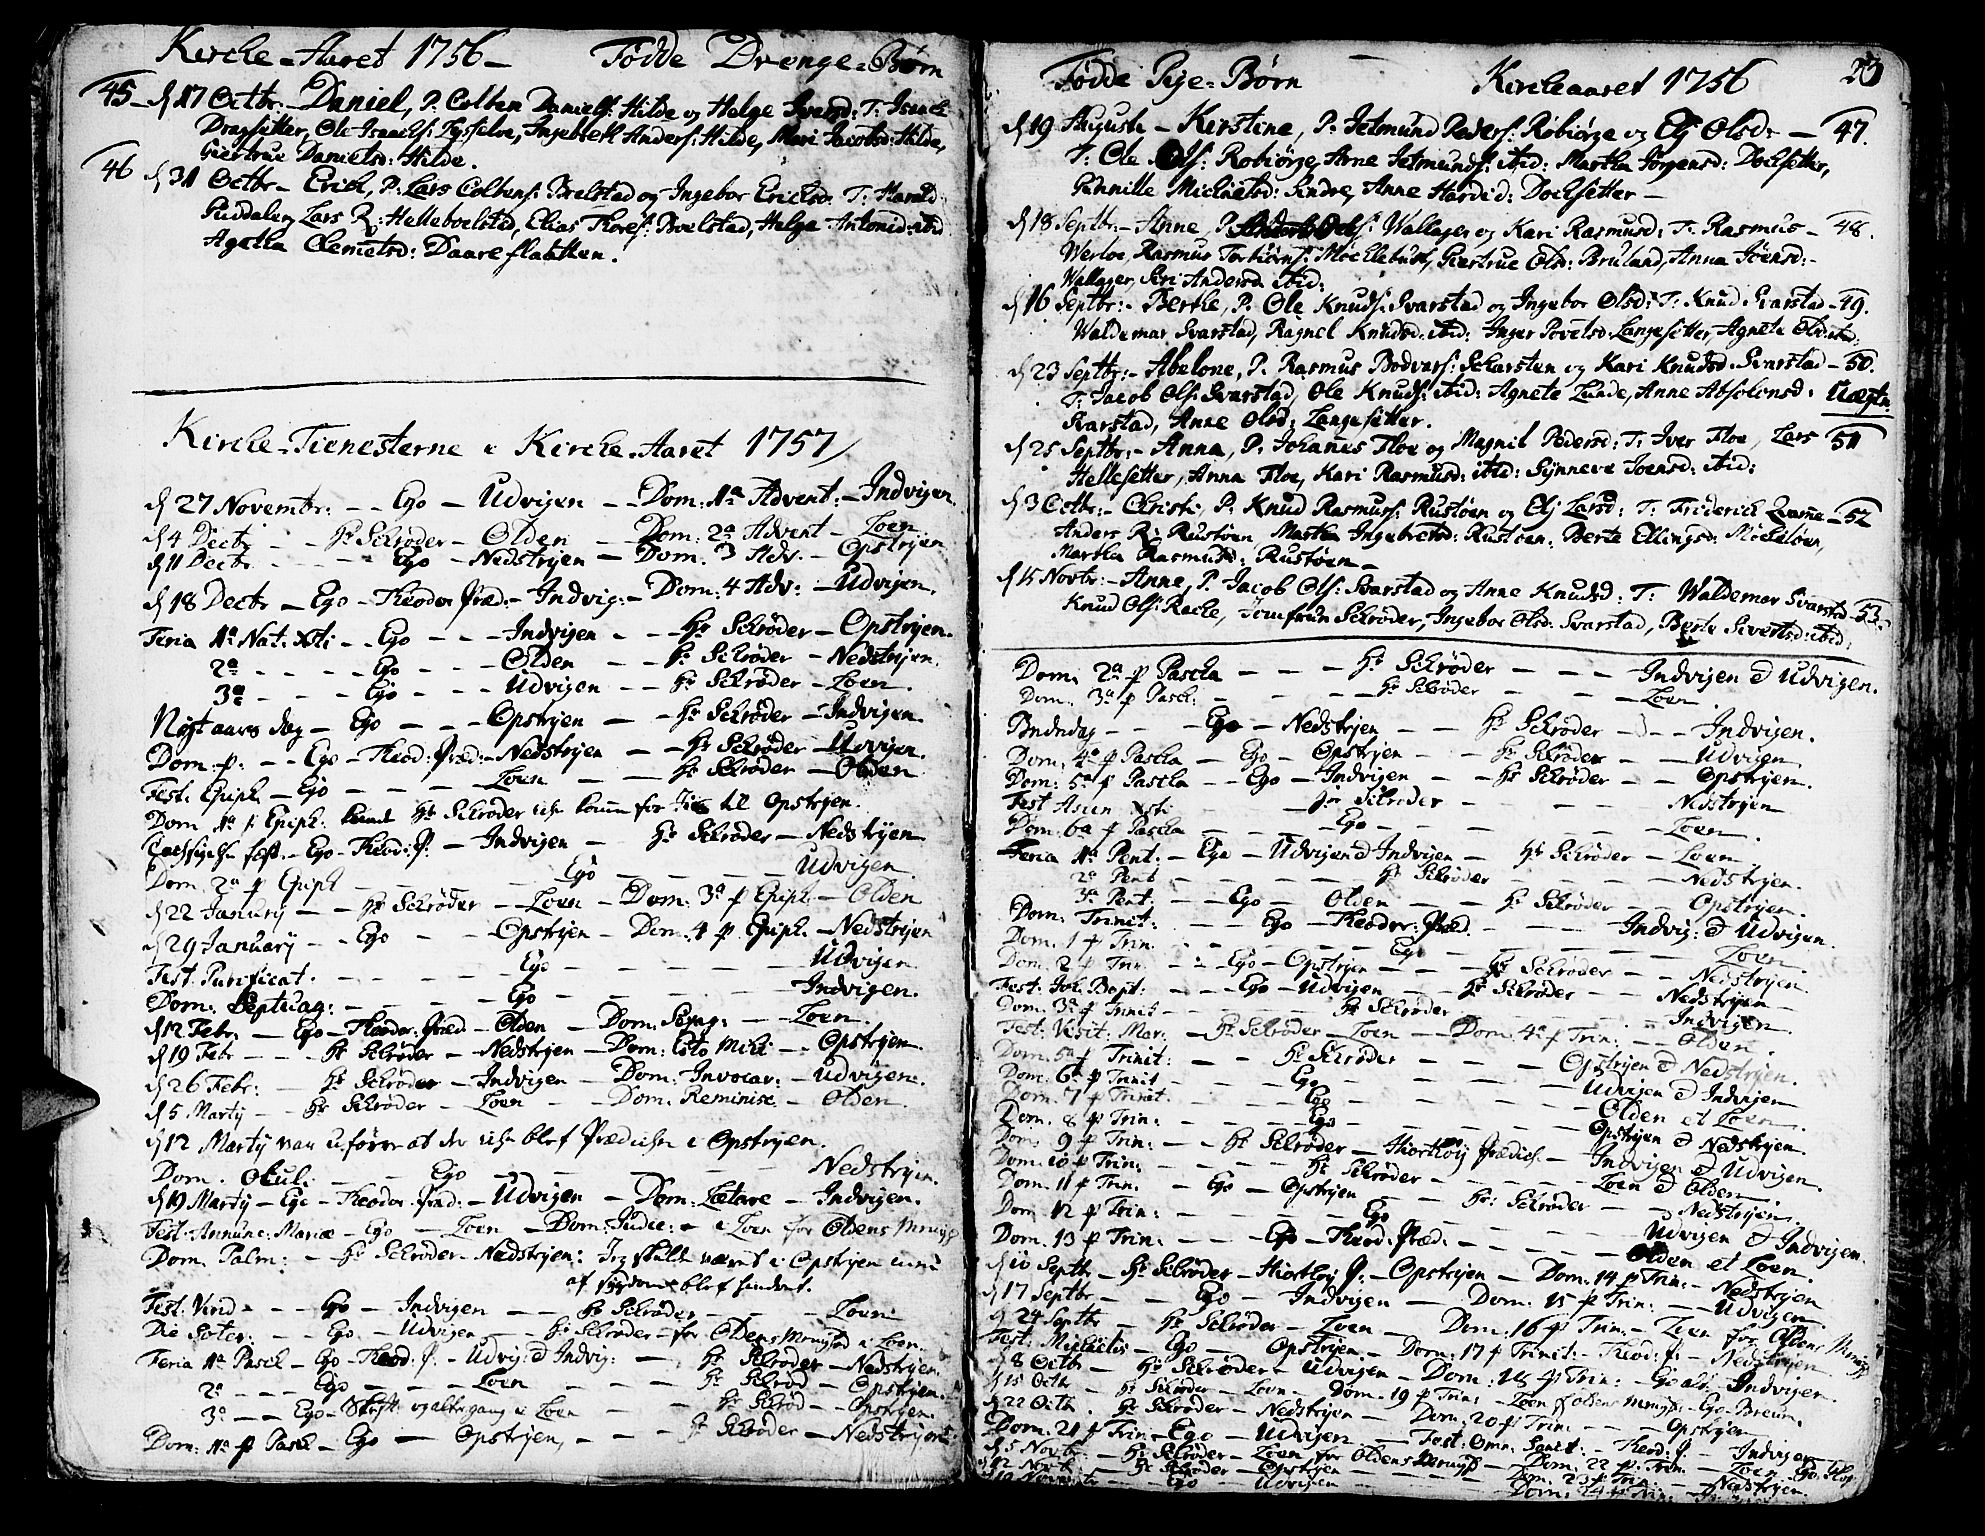 Kircke-Aaret 1756 - Fødde Drenge-Børn
45 - d 17 Octbr: - Daniel, P. Colben Daniels: Hilde og Helge Iversd: T: Isach
Dragsetter, Ole Isachs: Ingebreth Anders: Hilde, Mari Jacobsd: Hilde,
Giertrue Danielsd: Hilde.
46 d 31 Octbr - Erich, P: Lars Colbens: Bvelstad og Ingebor Erichsd: T: Harald
Lars R: Hellebvelstad, Elias Thores: Bvelstad, Helge Antonid: ibid
Agatha Clemetsd: Daareflaatten.
Kircke-Tienesterne i Kircke-Aaret 1757
d 27 Novembr: - - Ego - Udvigen - Dom: 1a Advent: - Indvigen.
d 4 Decbr - - Hr Schrøder - Olden - Dom: 2a Advent - Loen
d 11 Decbr - - - - Ego - Nedstryen - Dom: 3 Adv. - Opstryen
d 18 Decbr - Ego - Theodor Præd: - Indvig: - Dom: 4 Adv: - Udvigen.
Feria 1a Nat: Xti - - Ego - - - Indvigen - - Hr Schrøder - Opstryen.
2a - - - - - Ego - - - Olden - - Hr Schrøder - Nedstryen.
3a - - - - - Ego - - - Udvigen - - Hr Schrøder - Loen.
Nyt aars dag - Ego - - - Opstryen - - Hr Schrøder - Indvigen.
Dom: p: - - Ego - Theod: Præd: - Nedstryen - - Hr Schrøder - Udvigen.
Fest: Epiph - Ego - - - - Loen - - Hr Schrøder - Olden
Dom 1a p Epiph: kunde Hr Schrøder iche kom for til Opstryen.
fæst - Ego - Theod: P. - Indvigen - Hr Schrøder - Nedstryen
Dom. 2a p Epiph - - - - Ego - - - - Udvigen.
d 22 January - - Hr Schrøder - Loen - Dom: 3a p Epiph - Olden
d 29 January - - Ego - - Opstryen - Dom: 4 p Epiph. - Nedstryen
Fest Purificat. - - - - Ego - - - - - Udvigen
Dom: Septuag: - - - - Ego - - - - - Indvigen.
d 12 Febr: - Ego - Theodor: Præd - Olden - Dom: Sexag: - Loen.
d 19 Febr - - - Hr Schrøder - Nedstryen - Dom: Esto Mihi - Opstryen.
d 26 Febr: - Hr Schrøder - Indvigen - Dom: Invocav: - Udvigen.
d 5 Marty - - Hr Schrøder - Loen - - Dom: Reminisc - Olden
d 12 Marty var uføre at der iche blef Prædiche i Opstryen.
Dom. Okuli - - - Ego - - - - - Nedstryen.
d 19 Marty - Ego - Theodor: Præd: - Udvigen - Dom: Lætare - Indvigen.
Fest: Annunc: Mariæ - Ego - Loen - Dom: Judic: - i Loen for Oldens
Dom: Palm: - Hr Schrøder - Nedstryen: Jeg skulde været i Opstryen
af blef hindret.
Fest: Virid - - - Ego - Indvigen - - Hr Schrøder - - - Loen
Die Soter: - - Ego - Udvigen - Hr Schrøder - for Oldens i Loen.
Feria 1a Pasch - Ego - Theod: P: - Udvig: & Indvig: - Hr Schrøder - Nedstryen.
2a - - - Ego - - - Loen - - - Hr Schrød - Opstryen.
3a - - Ego - Skrift: og altergang i Loen - - Hr Schrød - Opstryen.
Dom: 1a p Pasch - Ego - Opstryen, - - - Hr Schrøder - Nedstryen
Fødde Pige-Børn - Kirckeaaret 1756 23
d 19 Augusti - Kirstine, P: Jetmund Peders: Robiørge og Elj Olsd: - 47.
T: Ole Ols: Robiørge, Arne Jetmunds: ibid: Martha Jørgensd: Dochsetter,
Gunnille Michelsd: Indre, Anne Harvid: Dochsetter -
d 18 Septbr: - Anne, P. Wallager og Kari Rasmusd: T: Rasmus - 48.
Werloe, Rasmus Torbiørns: Møcklebust, Giertrue Olsd: Bruland, Anna Joensd: -
Wallager, Siri Andersd: ibid:
d 16 Septbr: - Berthe, P. Ole Knuds: Svarstad og Ingebor Olsd: T: Knud Svarstad - 49.
Waldemar Svarstad, Ragnel Knudsd: ibid: Inger Povelsd: Langesetter, Agnete Olsd: ibid:
d 23 Septbr: - Abelone, P. Rasmus Bodvers: Scharsten og Kari Knudsd: Svarstad - 50.
T: Jacob Ols: Svarstad, Ole Knuds: ibid: Agnete Lunde, Anne Absolonsd: Uægte
Svarstad, Anne Olsd: Langesetter.
d 25 Septbr: - Anna, P. Johanes Floe og Magnil Pedersd: T: Iver Floe, Lars 51
Hellesetter, Anna Floe, Kari Rasmusd: ibid: Synneve Joensd: ibid:
d 3 Octbr: - Christi P. Knud Rasmus: Rustøen og Elj Larsd: T: Friderich Qvame - 52
Anders R: Rustøen Martha Ingebretsd: Rustøen: Berte Ellingsd: Mocheløen,
Martha Rasmusd: Rustøen -
d 15 Novbr: - Anne, P. Jacob Ols: Svarstad og Anne Knudsd: T: Waldemar Svarstad - 53.
Knud Ols: Racke, Jomfrun Schrøder, Ingebor Olsd: Svarstad, Berte Sivertsd: ibid:
Dom. 2a p Pascha - - Hr Schrøder - - - Indvigen & Udvigen.
Dom. 3a p Pasch: - - - Hr Schrøder - - - Loen.
Bndndag - - - Ego - Nedstryen - - Hr Schrøder - - - Indvigen.
Dom. 4a p Pascha - Ego - Opstryen - - Hr Schrøder - - Udvigen
Dom: 5a p Pascha - - Ego - Indvigen - - Hr Schrøder - - Opstryen.
Fest Ascen Xsti - - - Hr Schrøder - - - Nedstryen
Dom: 6a p Pascha - - - Ego - - - - Loen.
Feria 1a Pent: - Ego - Udvigen & Indvigen - Hr Schrøder - Loen.
2a Pent - - - - - Hr Schrøder - - - Nedstryen.
3a Pent. - - Ego - Olden - - Hr Schrøder - - Opstryen.
Dom: Trinit: - - - Ego - Theodor: Præd. - - - Indvig: & Udvigen.
Dom. 1 p Trin - - - - Ego - - - - Loen.
Dom. 2 p Trin. - - Ego - Opstryen - - Hr Schrøder - - Nedstryen.
Fest: Joh: Bapt: - - - Ego - Udvigen - - Hr Schrøder - - Nedstryen
Dom: 3a p Trinit - - - - Hr Schrøder - - - Indvigen
Fest: Visit: Mar. - Hr Schrøder - Loen - Dom: 4a p Trin: - - Olden.
Dom: 5a p Trinit: - - Hr Schrøder - - - Opstryen & Nedstryen.
Dom: 6a p Trinit - - - Ego - - - - Udvigen & Indvigen
Dom: 7 p Trinit. - - - Ego - - - - Olden et Loen
Dom: 8 p Trin: - - - - Ego - - - - Opstryen & Nedstryen.
Dom: 9 p Trin: - - - Hr Schrøder - Hiorthoy Prædich - Indvigen & Udvigen.
Dom: 10 p Trin: - - - - Hr Schrøder - - - - Loen & Olden
Dom: 11 p Trin. - - Ego - Opstryen - - - Hr: Schrøder - - Nedstryen.
Dom 12 p Trin: - - - - - Ego - - - - Udvigen & Indvigen.
Dom: 13 p Trin: - - - Ego - Theod: Præd. - - - - Olden et Loen.
d 10 Septbr - Hr Schrøder - Hiorthoy P: - Opstryen - Dom: 14 p Trin: - Nedstryen
d 17 Septbr - - - Ego - Indvigen - Dom: 15 p Trin: - - Udvigen
d 24 Septbr - Hr Schrøder - Loen - Dom: 16 p Trin: - Loen for Oldens
Fest: Michaelis - Ego - Opstryen - Dom: 17 p Trinit: - Theod: P: - Nedstryen
d 8 Octbr - Hr Schrøder - Udvigen - Dom: 18 p Trin: - Indvigen
d 15 Octb. Hr Schrøder - Loen - Dom. 19 p Trin: Loen f Oldens - Ego Breum.
d 22 Octb. Hr Schrøder - Nedstryen - Dom: 20 p Trin: - Opstryen
Dom: 21 p Trin - Ego - Udvigen - Fest: Omn: Sanct: - Theod: P - Indvigen
d 5 Novbr - Hr Schrøder - Loen for Oldens - Dom: 22 p Trin: - Loen
d 12 Novb Hr Schrøder - Opstryen - - Dom: 23 p Trin: - Nedstryen.
d 19 - Ego - Udvigen - - Dom: 24 p Trin: